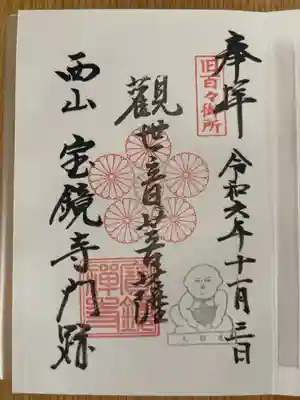 奉拝
令和六年十一月三日
旧百々御所
觀世音菩薩
西山 宝鏡寺門跡